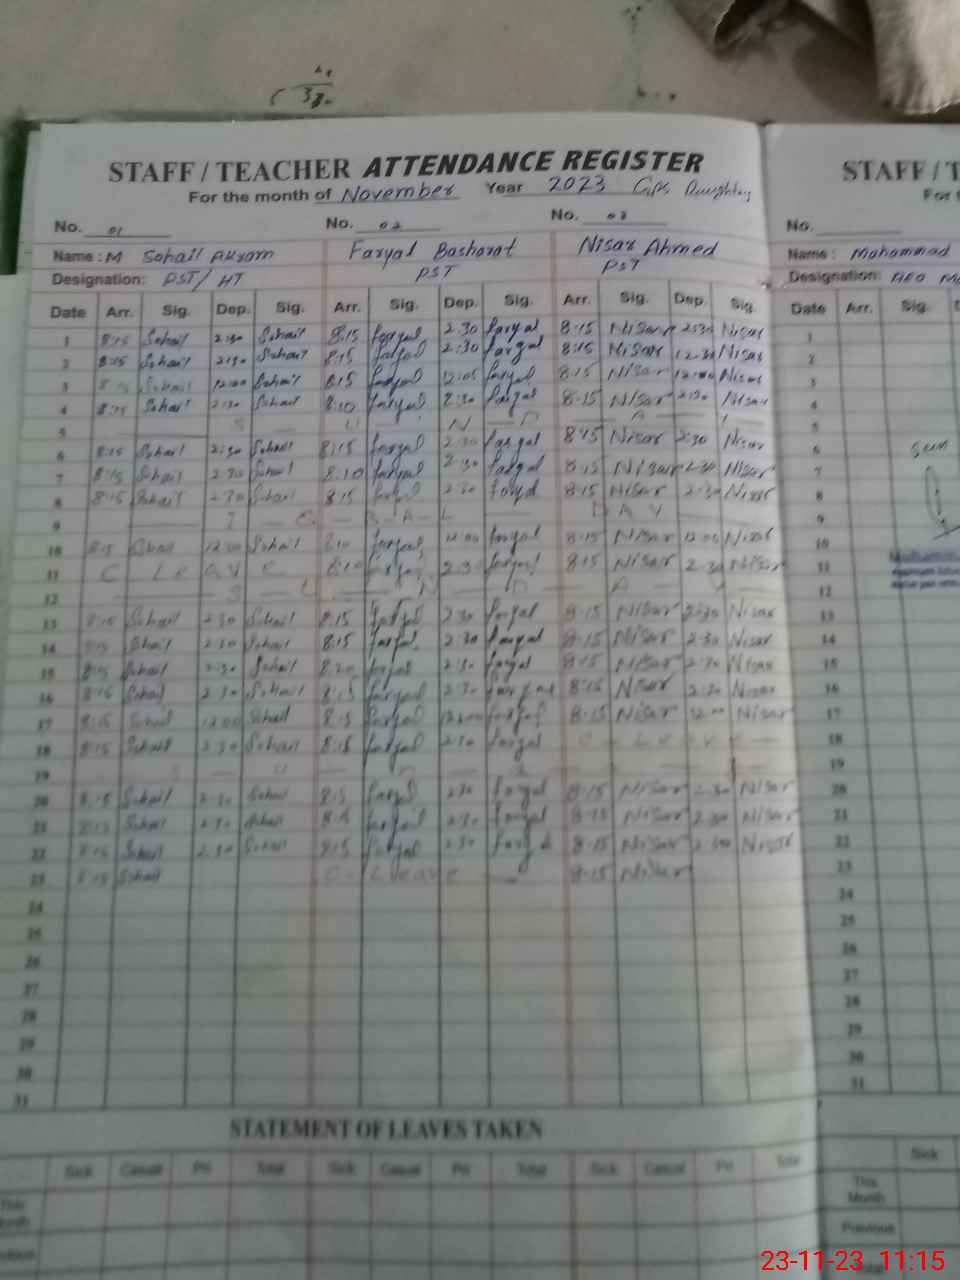 STAFF / TEACHER ATTENDANCE REGISTER
For the month of November Year 2023 GPS
No. 01 No. 02 No. 03
Name : M Sohail Akram Faryal Basharat Nisar Ahmed
Designation: PST/ HT PST PST
Date Arr. Sig. Dep. Sig. Arr. Sig. Dep. Sig. Arr. Sig. Dep. Sig.
1 8:15 Sohail 2:30 Sohail 8:15 faryal 2:30 faryal 8:15 Nisar 2:30 Nisar
2 8:15 Sohail 2:30 Sohail 8:15 faryal 2:30 faryal 8:15 Nisar 12:30 Nisar
3 8:15 Sohail 12:00 Sohail 8:15 faryal 12:05 faryal 8:15 Nisar 12:00 Nisar
4 8:15 Sohail 2:30 Sohail 8:10 faryal 2:30 faryal 8-15 Nisar 2:30 Nisar
5 S U N D A Y
6 8:15 Sohail 2:30 Sohail 8:15 faryal 2:30 faryal 8:15 Nisar 2:30 Nisar
7 8:15 Sohail 2:30 Sohail 8:10 faryal 2:30 faryal 8:15 Nisar 2:30 Nisar
8 8:15 Sohail 2:30 Sohail 8:15 faryal 2:30 faryal 8:15 Nisar 2:30 Nisar
9 I Q B A L DAY
10 8:15 Sohail 12:00 Sohail 8:10 faryal 12:00 faryal 8:15 Nisar 12:00 Nisar
11 C Leave 8:10 faryal 2:30 faryal 8:15 Nisar 2:30 Nisar
12 S U N D A Y
13 8:15 Sohail 2:30 Sohail 8:15 faryal 2:30 faryal 8-15 Nisar 2:30 Nisar
14 8:15 Sohail 2:30 Sohail 8:15 faryal 2:30 faryal 8-15 Nisar 2:30 Nisar
15 8:15 Sohail 2:30 Sohail 8:20 faryal 2:30 faryal 8:15 Nisar 2:30 Nisar
16 8:15 Sohail 2:30 Sohail 8:15 faryal 2:30 faryal 8:15 Nisar 2:30 Nisar
17 8:15 Sohail 12:00 Sohail 8:15 faryal 12:00 faryal 8-15 Nisar 12:00 Nisar
18 8:15 Sohail 2:30 Sohail 8:15 faryal 2:30 faryal C-Leave
19 S U N
20 8:15 Sohail 2:30 Sohail 8:15 faryal 2:30 faryal 8-15 Nisar 2:30 Nisar
21 8:15 Sohail 2:30 Sohail 8:15 faryal 2:30 faryal 8-15 Nisar 2:30 Nisar
22 8:15 Sohail 2:30 Sohail 8:15 faryal 2:30 faryal 8-15 Nisar 2:30 Nisar
23 8:15 Sohail C-Leave 8-15 Nisar
24
25
26
27
28
29
30
31
STATEMENT OF LEAVES TAKEN
Sick Casual Pri Total Sick Casual Pri Total Sick Casual Pri Total
STAFF / T
No.
Name : Mohammad
Designation: AEO
Date Arr. Sig.
1
2
3
4
5
6
7
8
9
10
11
12
13
14
15
16
17
18
19
20
21
22
23
24
25
26
27
28
29
30
31
Sick
This
Month
Previous
23-11-23 11:15